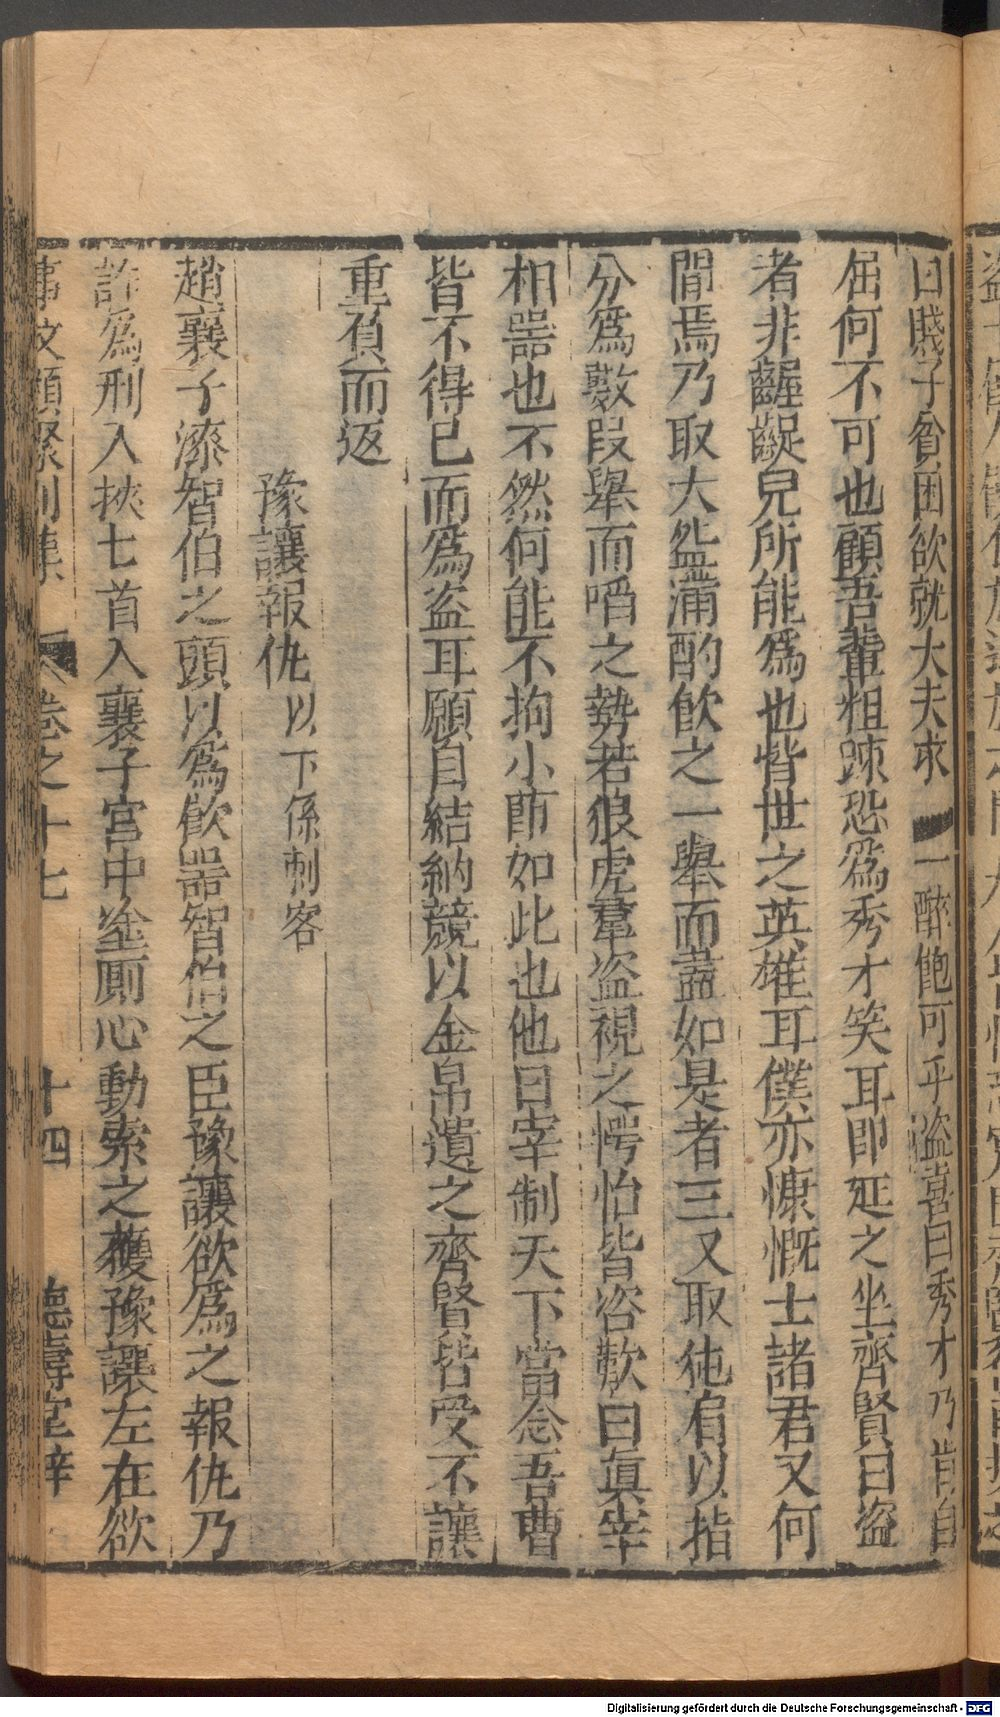 曰賤子貧困欲就大夫求一醉飽可乎盜喜曰秀才乃肯自
屈何不可也顧吾輩粗踈恐爲秀才笑耳即延之坐齊賢曰盜
者非齷齪兒所能爲也皆世之英雄耳僕亦慷慨士諸君又何
間焉乃取大盌滿酌飲之一舉而盖如是者三又取㹠肩以指
分爲數段舉而啗之勢若狼虎羣盜視之愕怡皆咨歎曰眞宰
相噐也不然何能不拘小莭如此也他日宰制天下當念吾曹
皆不得已而爲盜耳願自結納競以金帛遺之齊賢皆受不讓
重負而返
豫讓報仇以下係刺客
趙襄子漆智伯之頭以爲飲噐智伯之臣豫讓欲爲之報仇乃
詐爲刑入挾七首入襄子宮中塗厠心動索之獲豫讓左在欲
事文類聚別集 卷之十七 十四 德壽堂梓
Digitalisierung gefördert durch die Deutsche Forschungsgemeinschaft - DFG